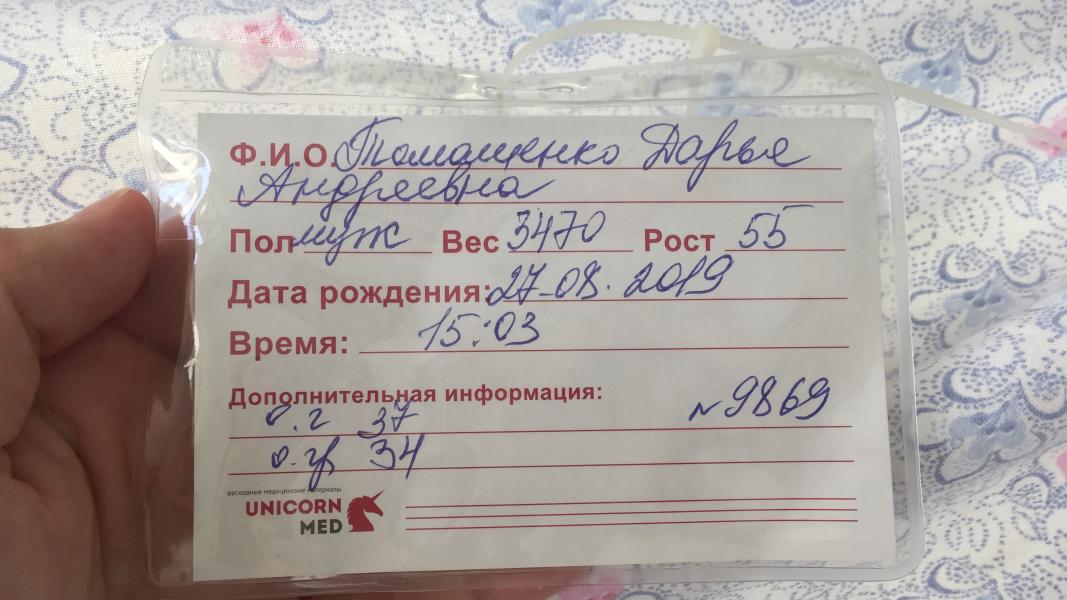 Ф.И.О. Томащенко Дарья
Андреевна
Пол муж Вес 3470 Рост 55
Дата рождения: 27-08. 2019
Время: 15:03
Дополнительная информация:
о.г 37 N9869
о.гр 34
расходные медицинские материалы
UNICORN
MED